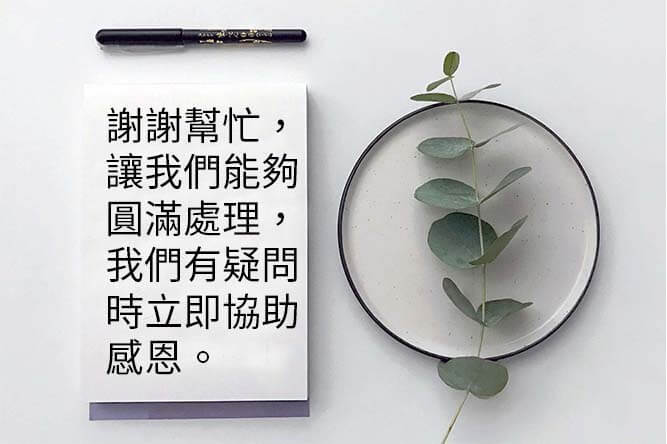 謝謝幫忙，
讓我們能夠
圓滿處理，
我們有疑問
時立即協助
感恩。